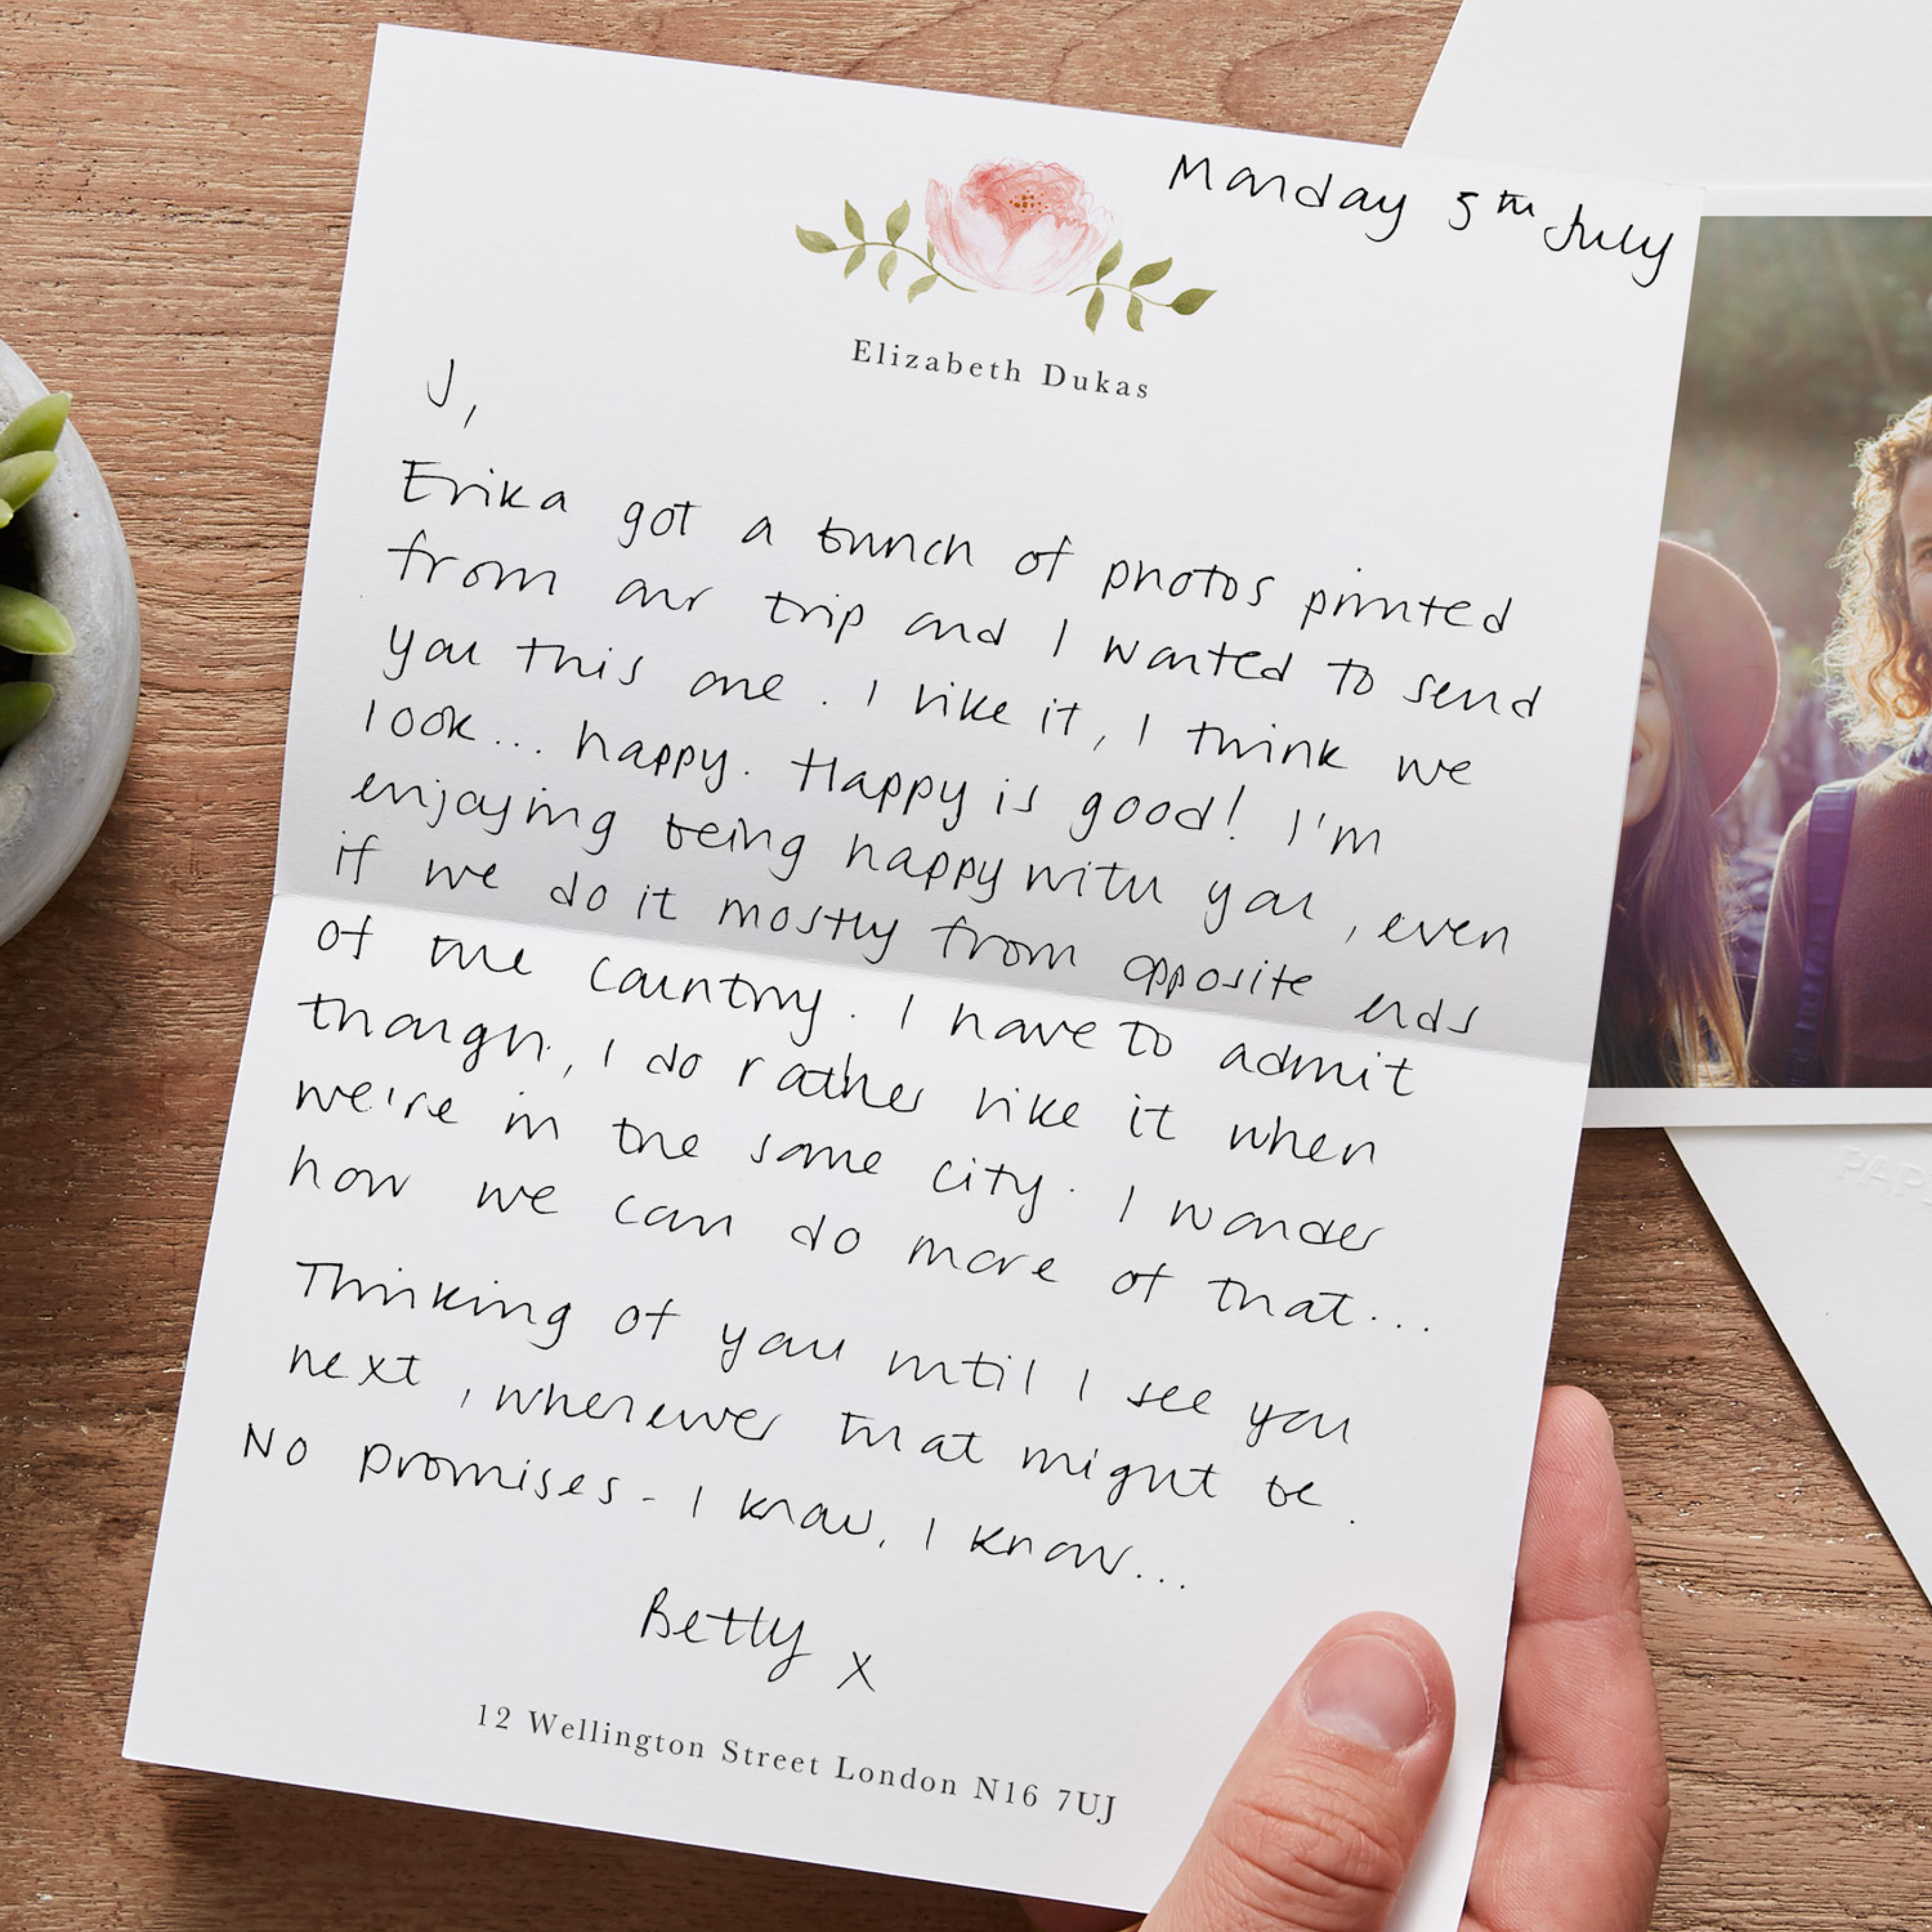 Monday 5th July
Elizabeth Dukas
J,
Erika got a bunch of photos printed
from our trip and I wanted to send
you this one. I like it, I think we
look... happy. Happy is good! I'm
enjoying being happy with you, even
if we do it mostly from opposite ends
of the country. I have to admit
though, I do rather like it when
we're in the same city. I wonder
how we can do more of that...
Thinking of you until I see you
next, whenever that might be.
No promises - I know, I know...
Betty x
12 Wellington Street London N16 7UJ